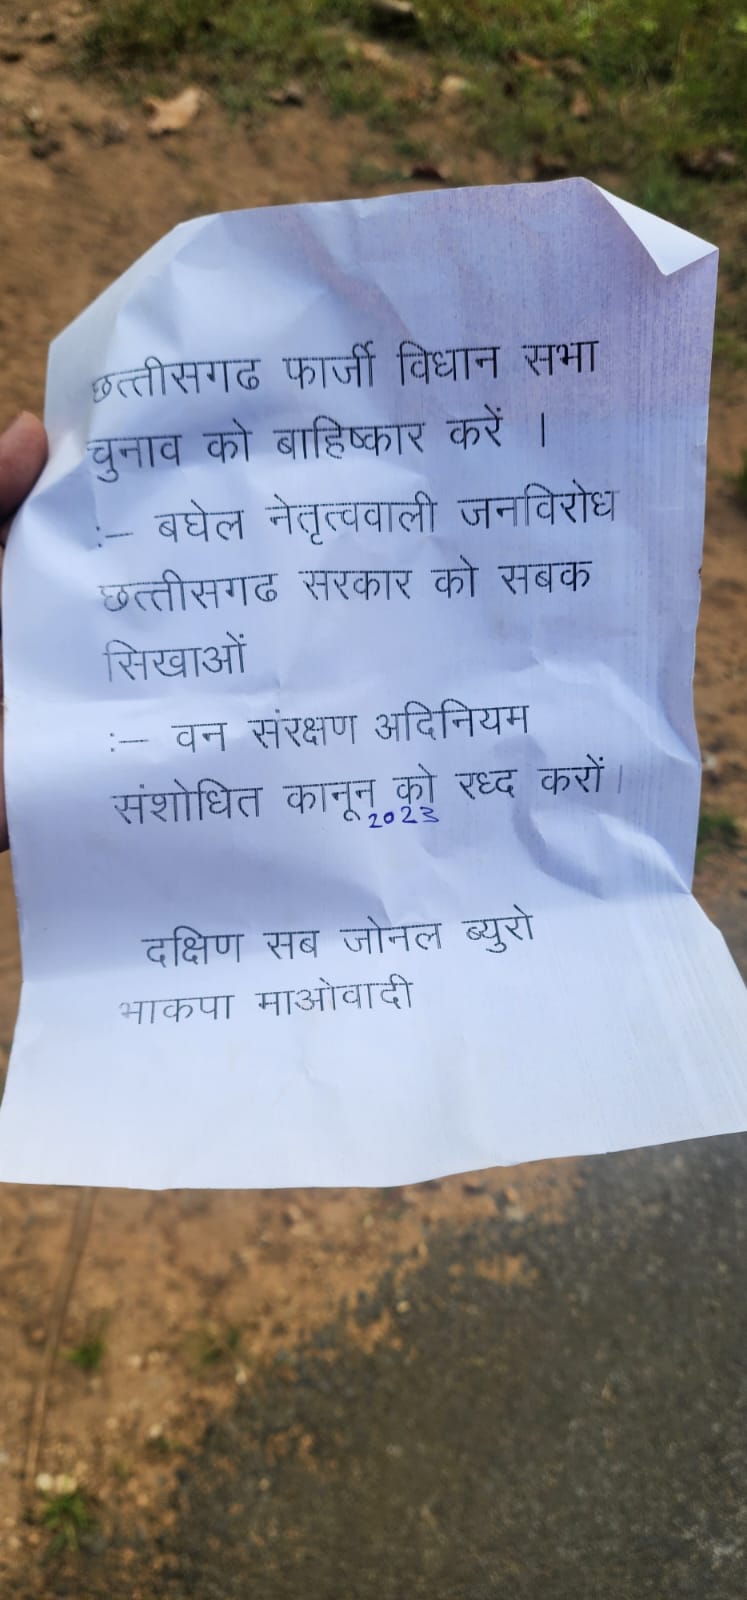 छत्तीसगढ फार्जी विधान सभा
चुनाव को बाहिष्कार करें ।
:– बघेल नेतृत्ववाली जनविरोध
छत्तीसगढ सरकार को सबक
सिखाओं
:– वन संरक्षण अदिनियम
संशोधित कानून को रध्द करों।
2023
दक्षिण सब जोनल ब्युरो
भाकपा माओवादी